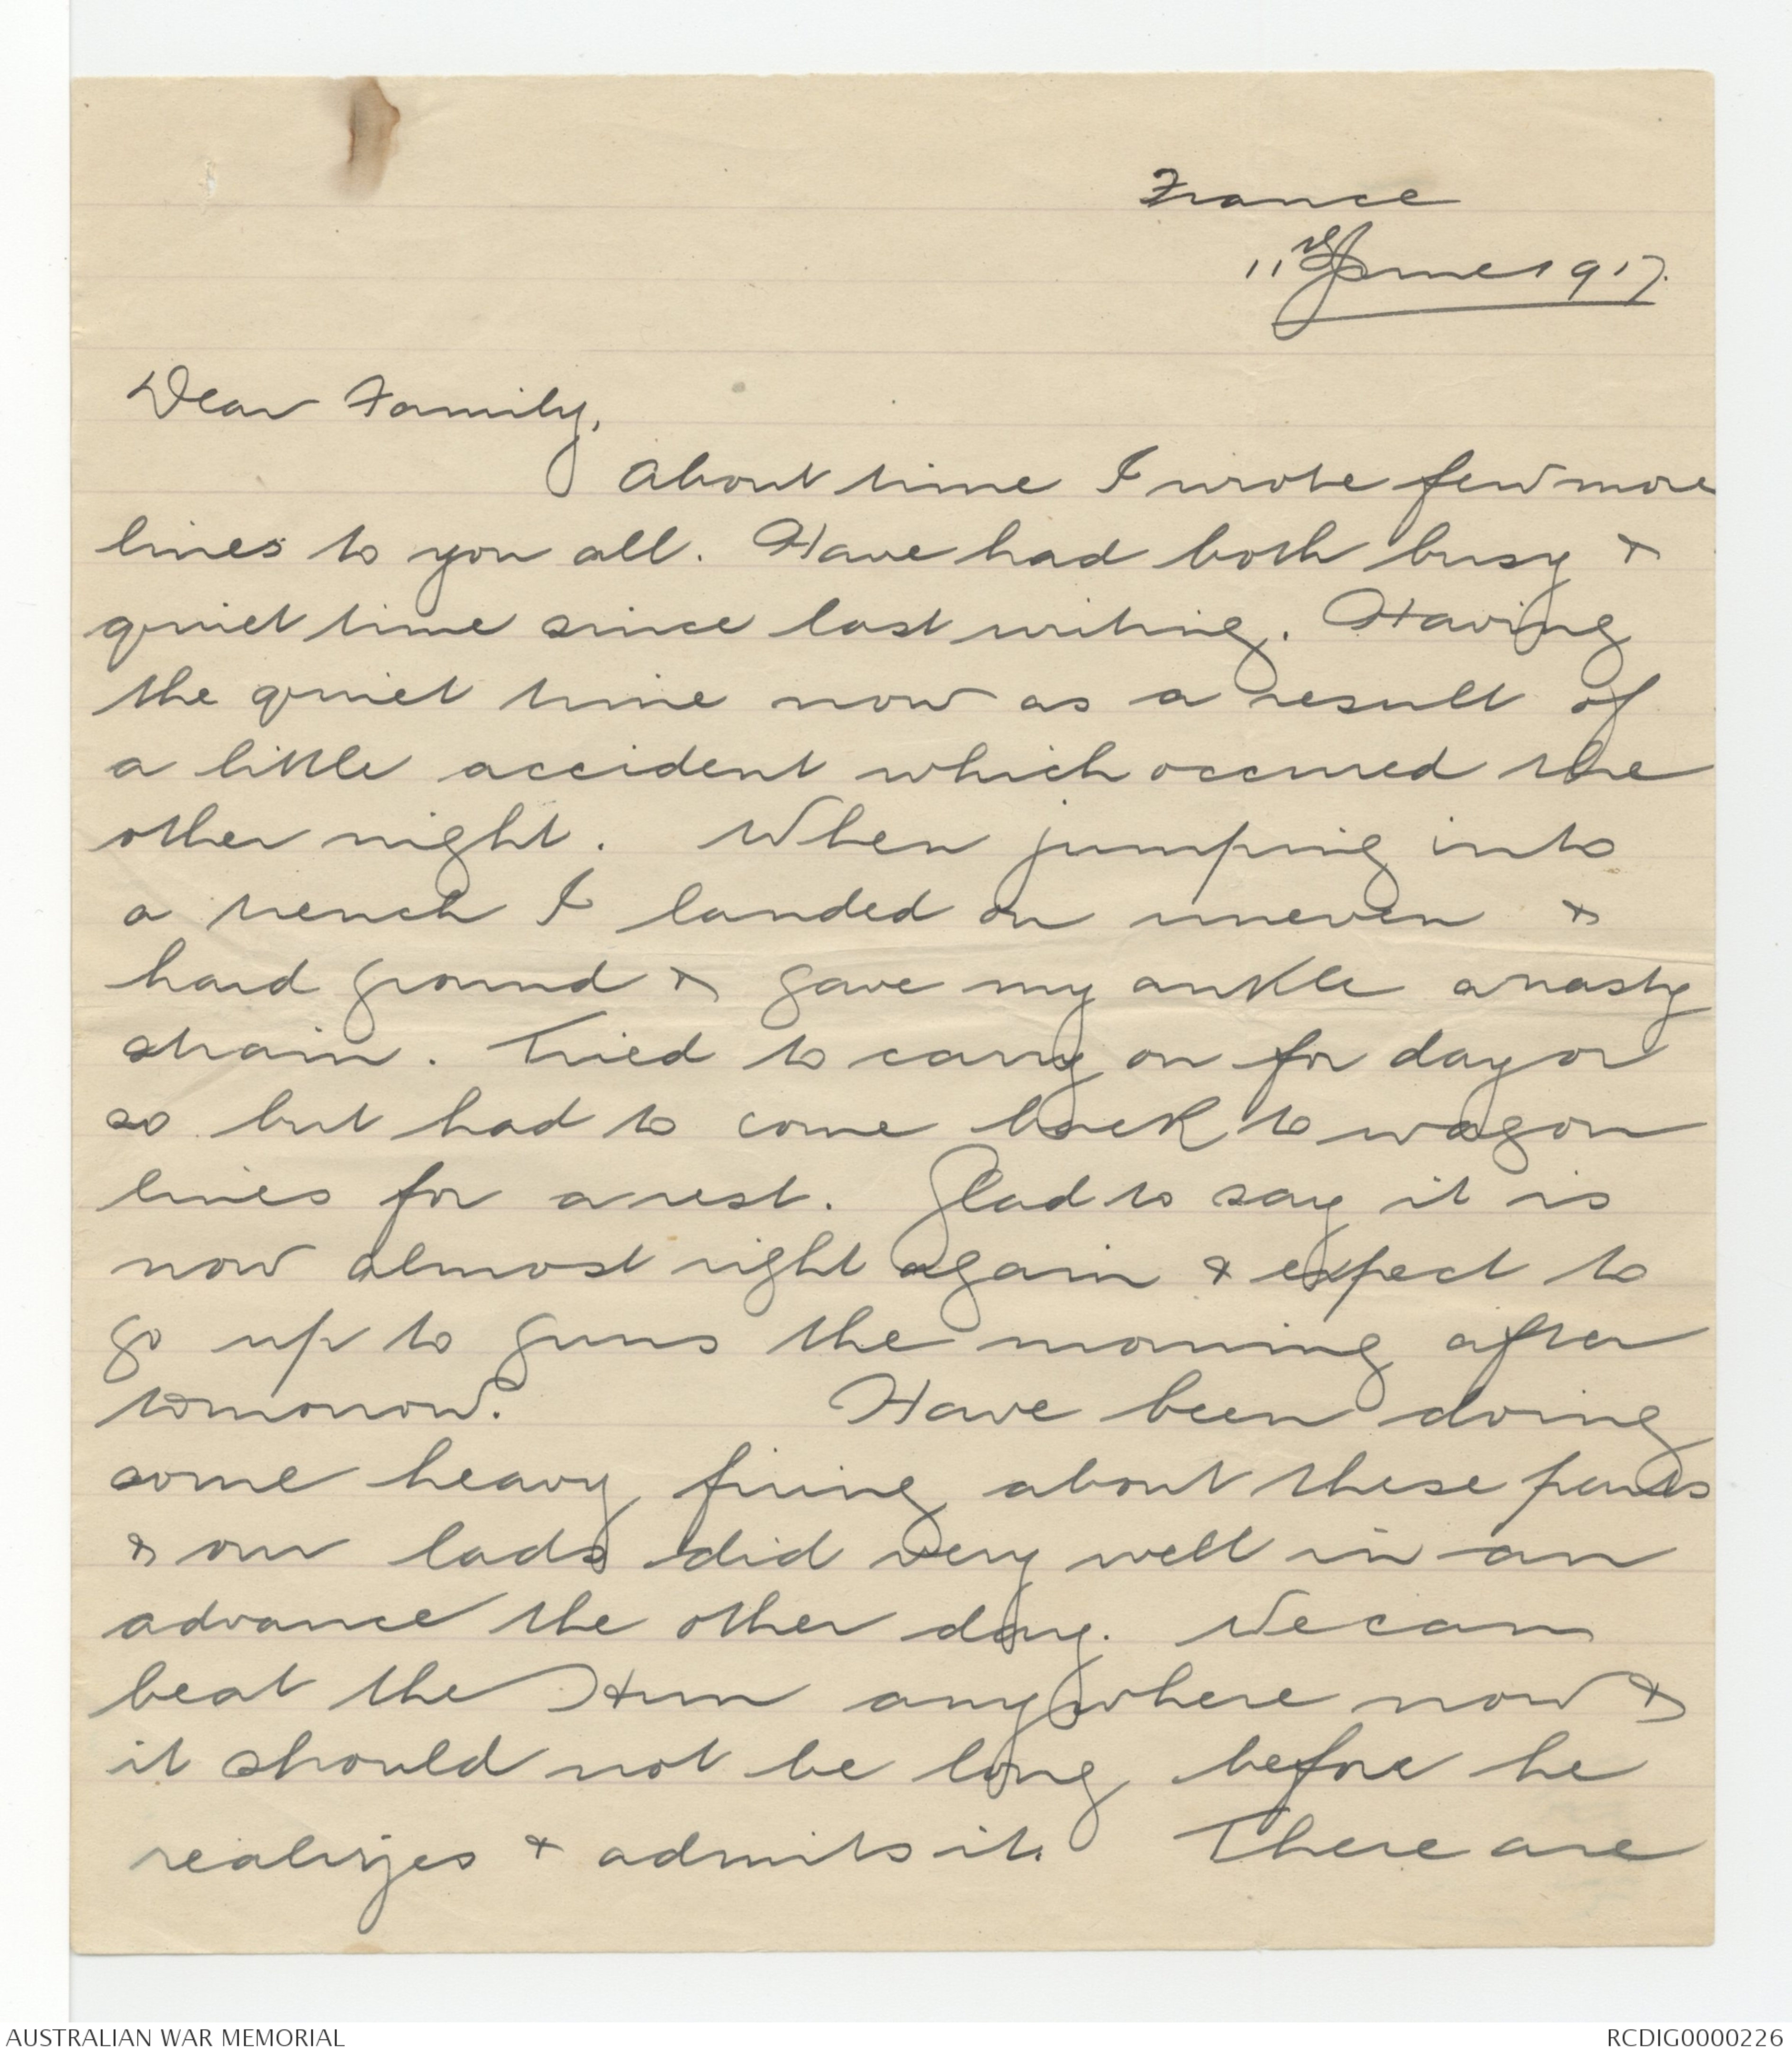 France
11th June 1917.
Dear Family,
About time I wrote few more
lines to you all. Have had both busy &
quiet time since last writing. Having
the quiet time now as a result of
a little accident which occured the
other night. When jumping into
a trench I landed on uneven &
hard ground & gave my ankle a nasty
strain. Tried to carry on for day or
so but had to come back to wagon
lines for a rest. Glad to say it is
now almost right again & expect to
go up to guns the morning after
tomorrow. Have been doing
some heavy firing about these parts
& our lads did very well in an
advance the other day. We can
beat the Hun anywhere now &
it should not be long before he
realizes & admits it. There are
AUSTRALIAN WAR MEMORIAL
RCDIG0000226